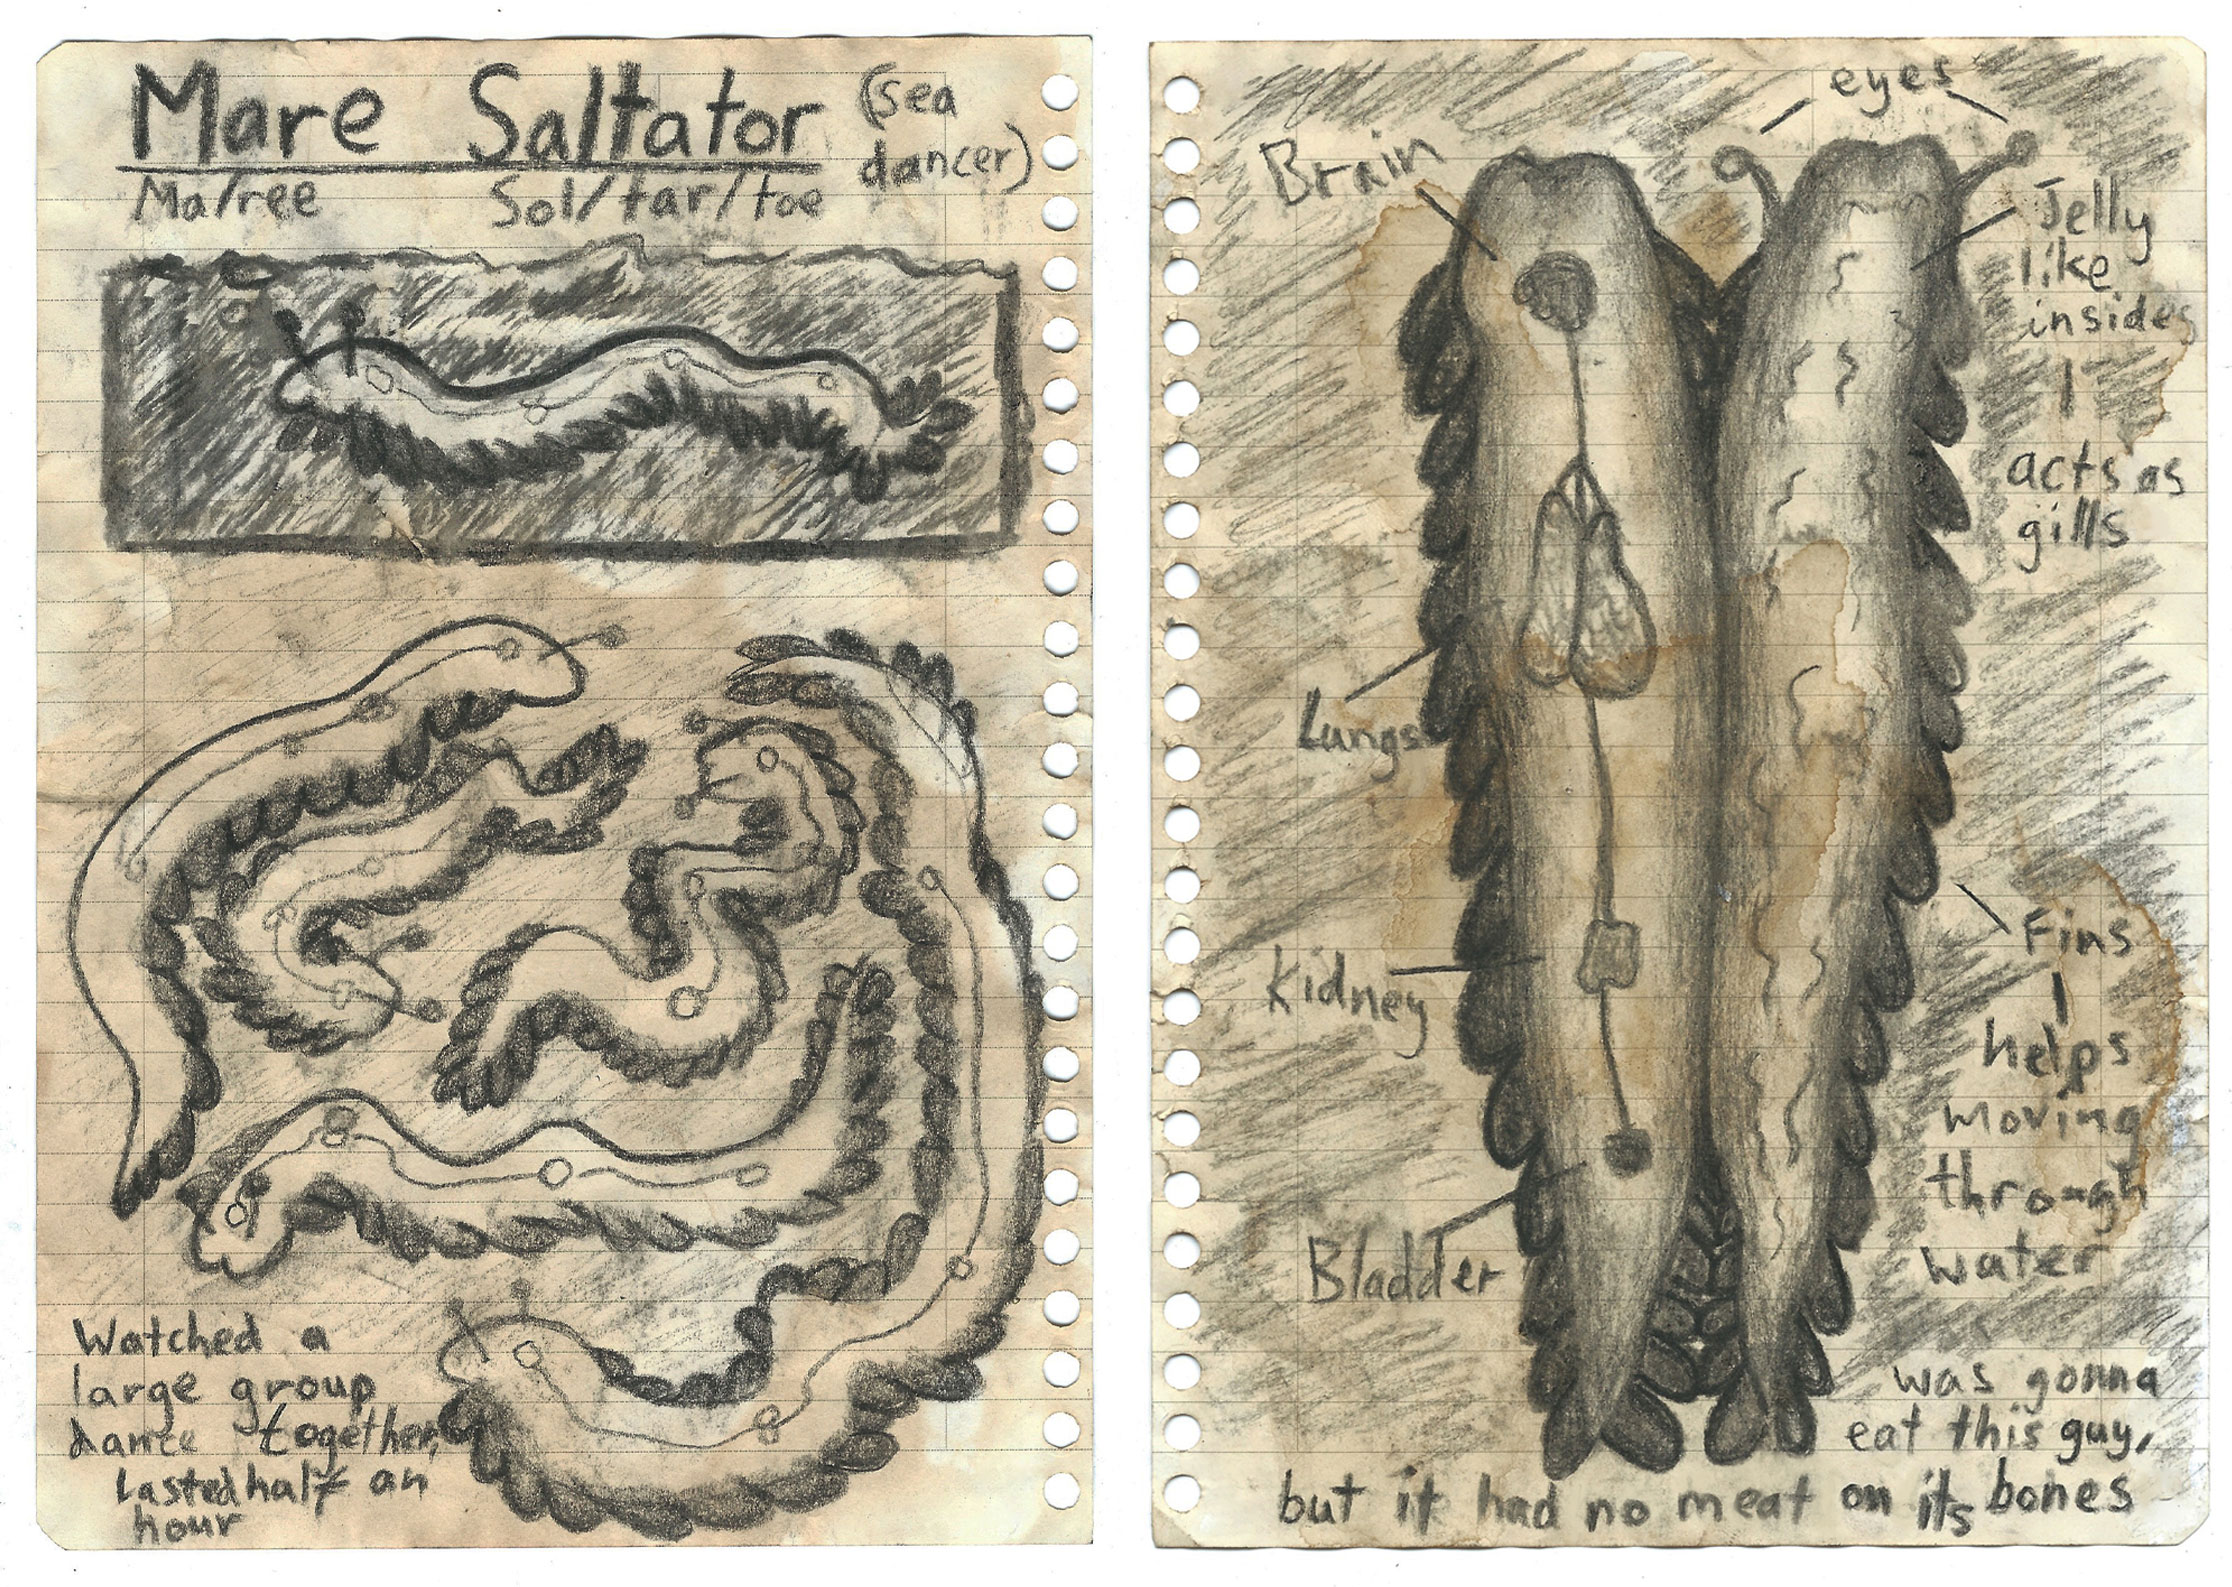 Mare Saltator (sea
dancer)
Ma/ree Sol/tar/toe
Watched a
large group
dance together,
lasted half an
hour
eyes
Brain
Jelly
like
insides
acts as
gills
Lungs
Kidney
Fins
helps
moving
through
water
Bladder
was gonna
eat this guy,
but it had no meat on its bones